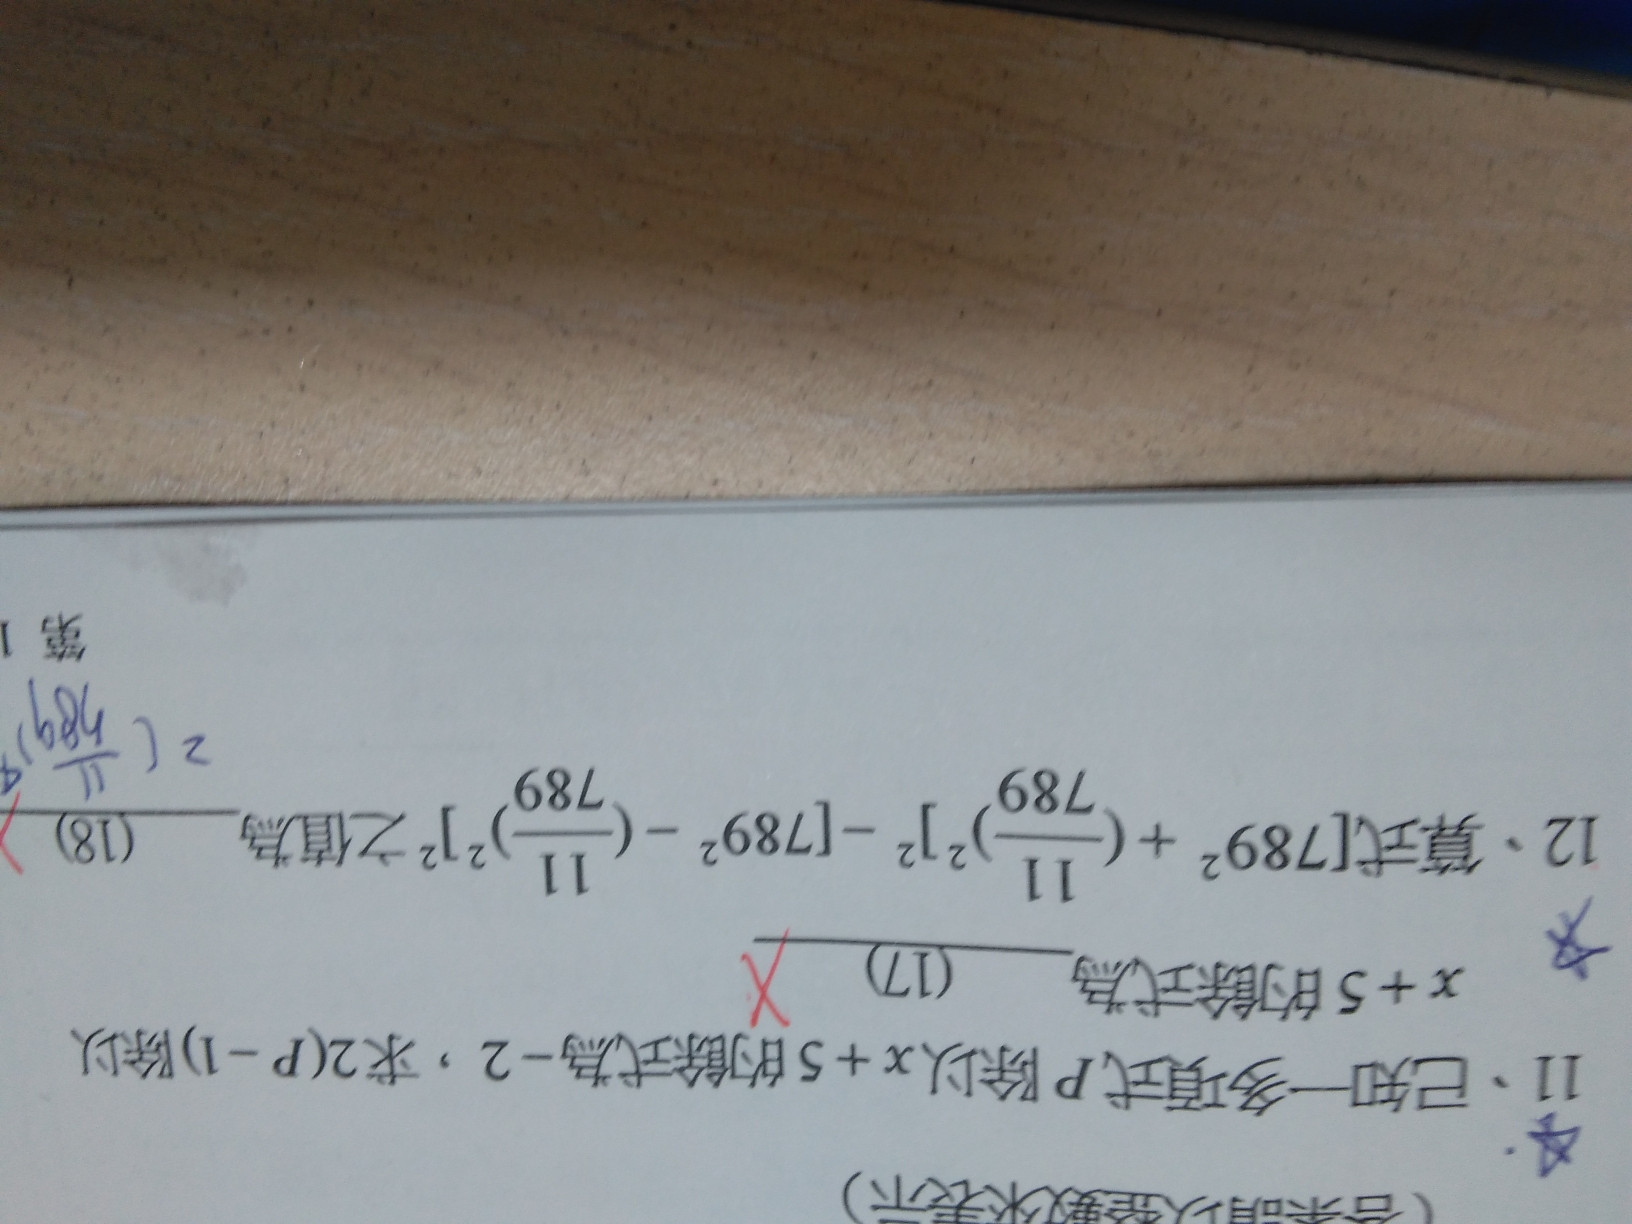 (答案請以整數來表示)
11、已知一多項式 P 除以 x + 5 的餘式為 − 2，求 2(P − 1)除以
x + 5 的餘式為 (17)
12、算式[789² + (11/789)²]² − [789² − (11/789)²]² 之值為 (18)
2 ( 11/789 )
第 1